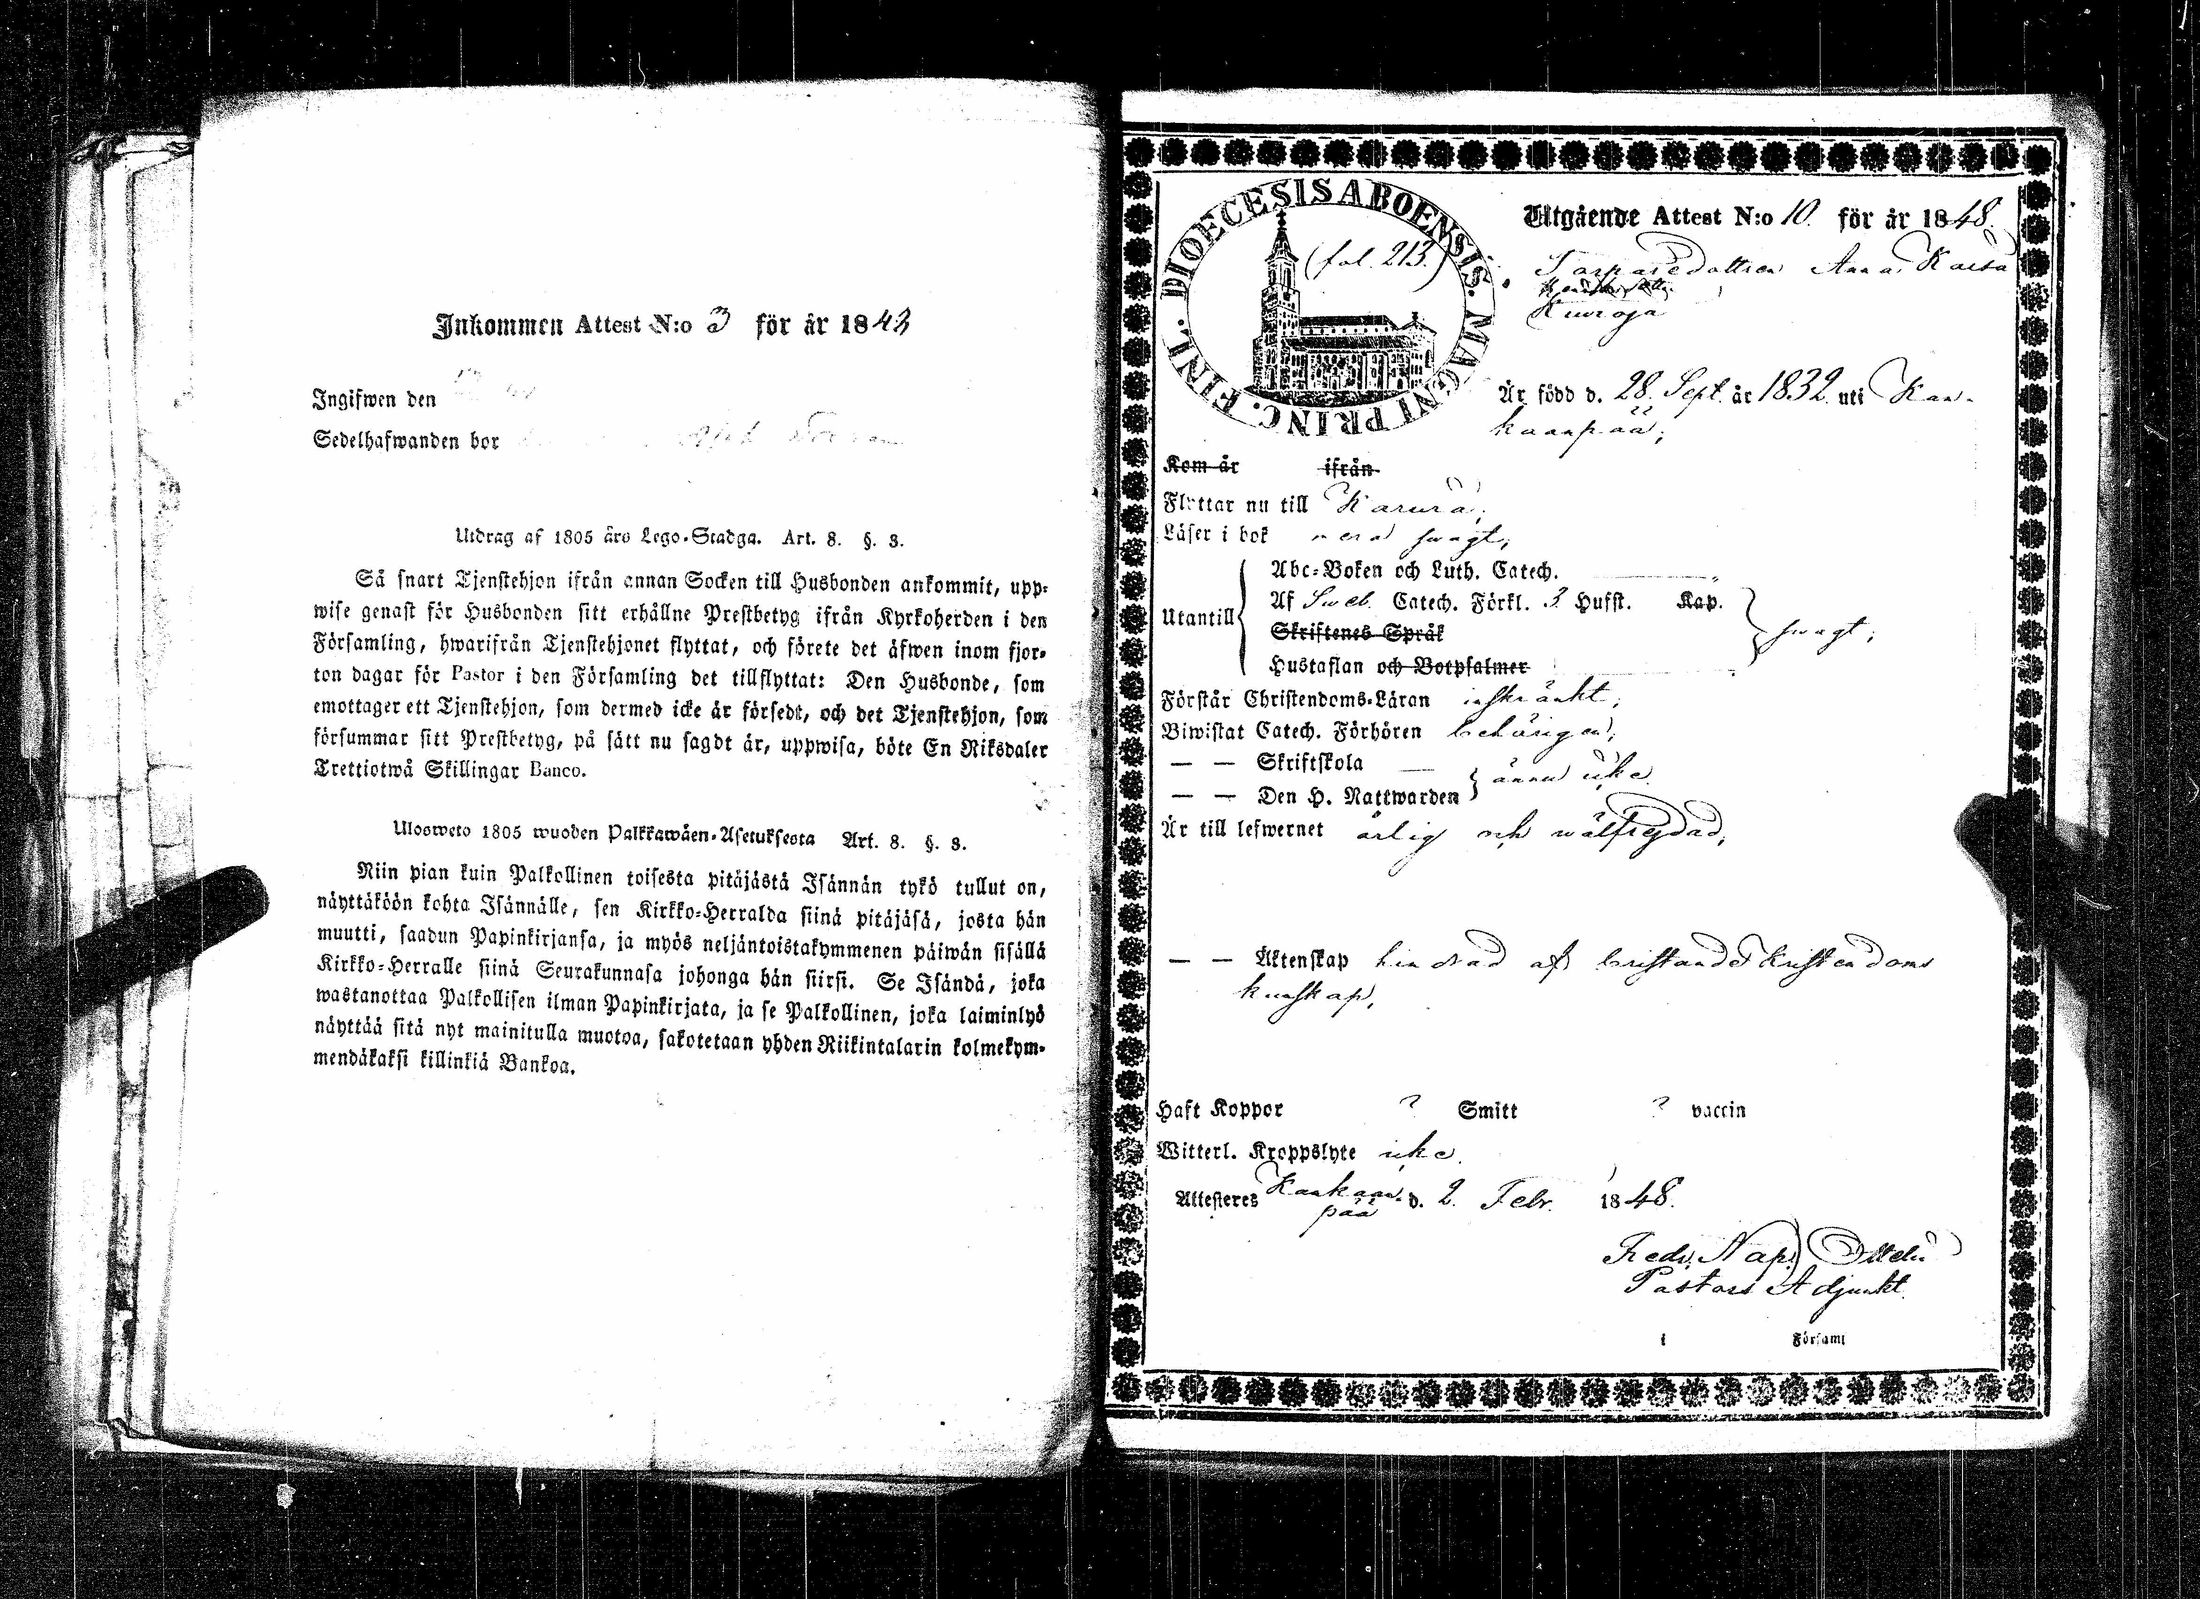 Inkommen Attest N:o 3 för år 1843
Ingifwen den
Sedelhafwanden bor
Utdrag af 1805 års Lego-Stadga. Art. 8. §. 3.
Så snart Tjenstehjon ifrån annan Socken till Husbonden ankommit, upp-
wise genast för Husbonden sitt erhållne Prestbetyg ifrån Kyrkoherden i den
Församling, hwarifrån Tjenstehjonet flyttat, och förete det äfwen inom fjor-
ton dagar för Pastor i den Församling det tillflyttat: Den Husbonde, som
emottager ett Tjenstehjon, som dermed icke är försedt, och det Tjenstehjon, som
försummar sitt Prestbetyg, på sätt nu sagdt är, uppwisa, böte En Riksdaler
Trettiotwå Skillingar Banco.
Ulosweto 1805 wuoden Palkkawäen-Asetuksesta Art. 8. §. 3.
Niin pian kuin Palkollinen toisesta pitäjästä Isännän tykö tullut on,
näyttäköön kohta Isännälle, sen Kirkko-Herralda siinä pitäjäsä, josta hän
muutti, saadun Papinkirjansa, ja myös neljäntoistakymmenen päiwän sisällä
Kirkko-Herralle siinä Seurakunnasa johonga hän siirsi. Se Isändä, joka
wastanottaa Palkollisen ilman Papinkirjata, ja se Palkollinen, joka laiminlyö
näyttää sitä nyt mainitulla muotoa, sakotetaan yhden Riikintalarin kolmekym-
mendäkaksi killinkiä Bankoa.
DIOECESIS ABOENSIS. MAGNI PRINC. FINL.
(fol. 213.)
Utgående Attest N:o 10. för år 1848.
Torparedottren Anna Kaisa
Kuuroja
Är född d. 28. Sept. år 1832. uti Kan-
kaanpää;
Kom år ifrån
Flyttar nu till
Läser i bok swagt;
Abc-Boken och Luth. Catech.
Utantill Af Sweb. Catech. Förkl. 3. Hufst. Kap.
Skriftenes Språk swagt;
Hustaflan och Botpsalmer
Förstår Christendoms-Läran inskränkt;
Biwistat Catech. Förhören behörigen;
— — Skriftskola — ännu icke
— — Den H. Nattwarden
Är till lefwernet ärlig och wälfrejdad;
— — Äktenskap hindrad af bristande Kristendoms
kunskap,
Haft Koppor ? Smitt ? vaccin
Witterl. Kroppslyte icke.
Attesteres Kankaan-
pää d. 2. Febr. 1848.
Fredr. Nap.
Pastors Adjunkt.
i Församl